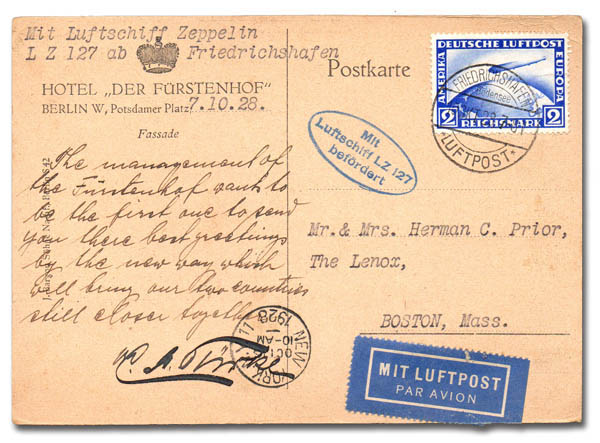 Mit Luftschiff Zeppelin
L Z 127 ab Friedrichshafen
HOTEL „DER FÜRSTENHOF"
BERLIN W, Potsdamer Platz 7.10.28.
Fassade
Postkarte
DEUTSCHE LUFTPOST
AMERIKA
EUROPA
2 REICHSMARK 2
FRIEDRICHSHAFEN
Bodensee
LUFTPOST
Mit
Luftschiff LZ 127
befördert
The management of
the Fürstenhof want to
be the first one to send
you there best greetings
by the new way which
will bring our two countries
still closer together
Mr. & Mrs. Herman C. Prior,
The Lenox,
BOSTON, Mass.
NEW YORK
OCT
10-AM
1928
11
MIT LUFTPOST
PAR AVION